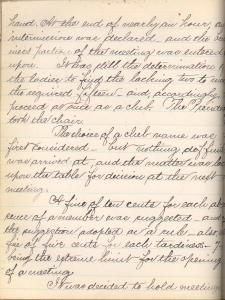 hand. At the end of nearly an hour, an
intermission was declared - and the
next part of the meeting was entered
upon. It was still the determination of
the ladies to find the lacking two to make
the required fifteen - and, accordingly
proceed at once as a club. The President
took the chair.
The choice of a club name was
first considered - but nothing definite
was arrived at, and the matter was laid
upon the table for decision at the next
meeting.
A fine of ten cents for each ab-
sence of a member was suggested - and
the suggestion adopted as a rule - also a
fine of five cents for each tardiness -
being the extreme limit for the opening
of a meeting.
It was decided to hold meetings